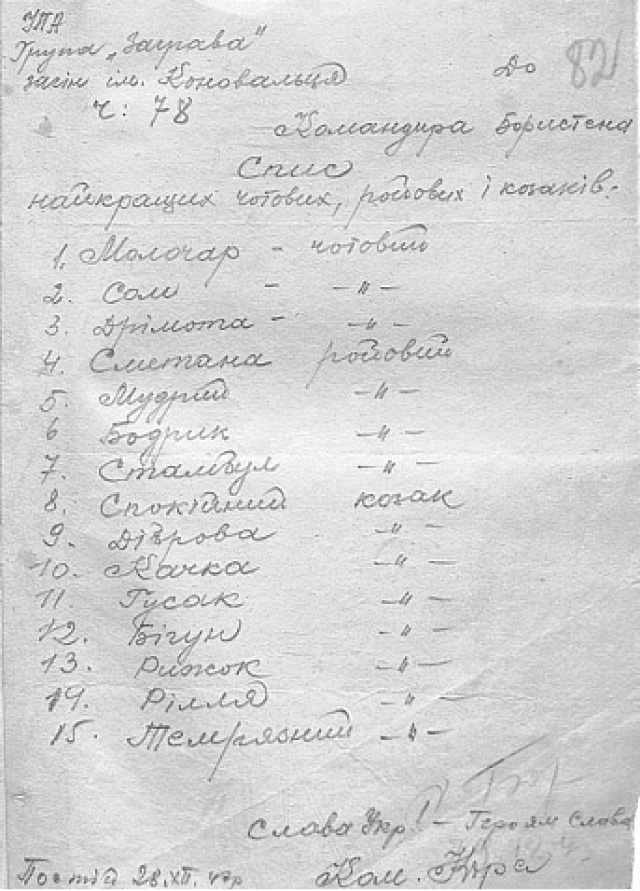 УПА
Група „Заграва"
загін ім. Коновальця
ч: 78
До 82
Командира Бористена
Спис
найкращих чотових, ройових і козаків.
1. Молочар - чотовий
2. Сом - -„-
3. Дрімота - -„-
4. Сметана ройовий
5. Мудрий -„-
6 Бодрик -„-
7. Стамбул -„-
8. Спокійний козак
9. Діброва -„-
10. Качка -„-
11. Гусак -„-
12. Бігун -„-
13. Рижок -„-
14. Рілля -„-
15. Темрявний -„-
Слава Укр! - Героям Слава
Постій 28.XII. 43р Ком.